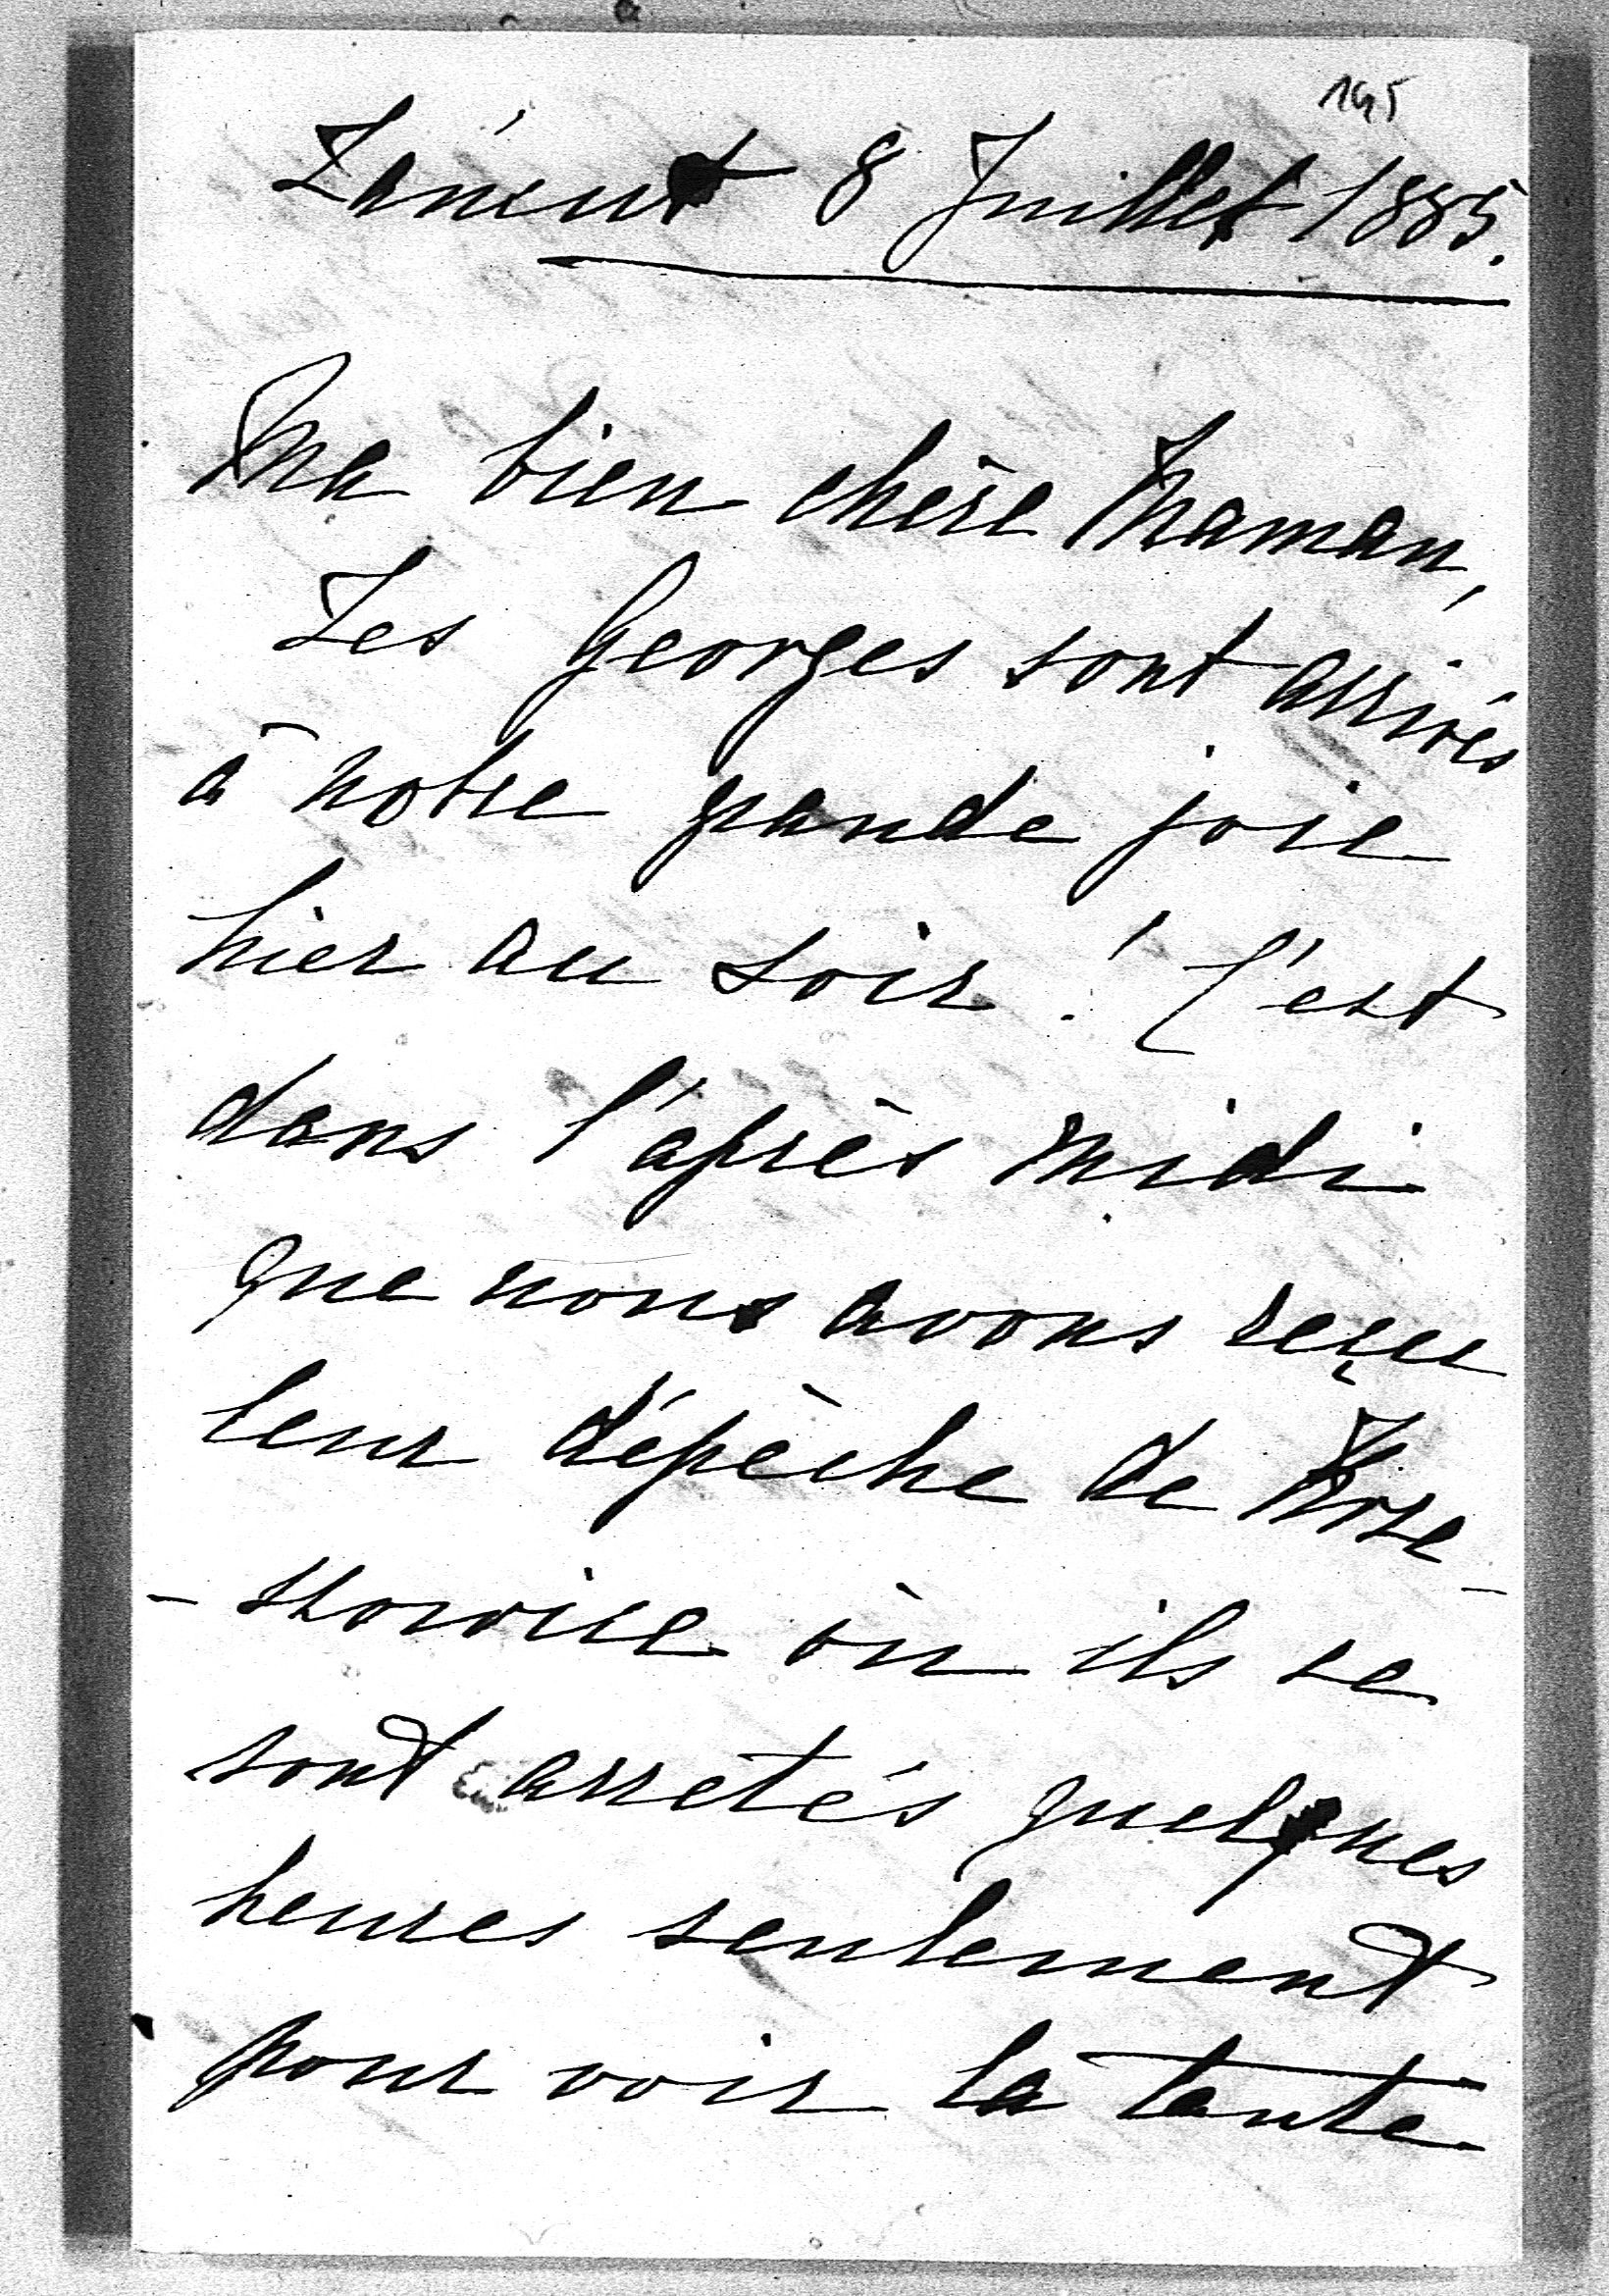 195
Łańcut 8 Juillet 1885.
Ma bien chère Maman,
Les Georges sont arrivés
à notre grande joie
hier au soir! C'est
dans l'après midi
que nous avons reçu
leur dépêche de
où ils se
sont arretés quelques
heures seulement
pour voir la tante